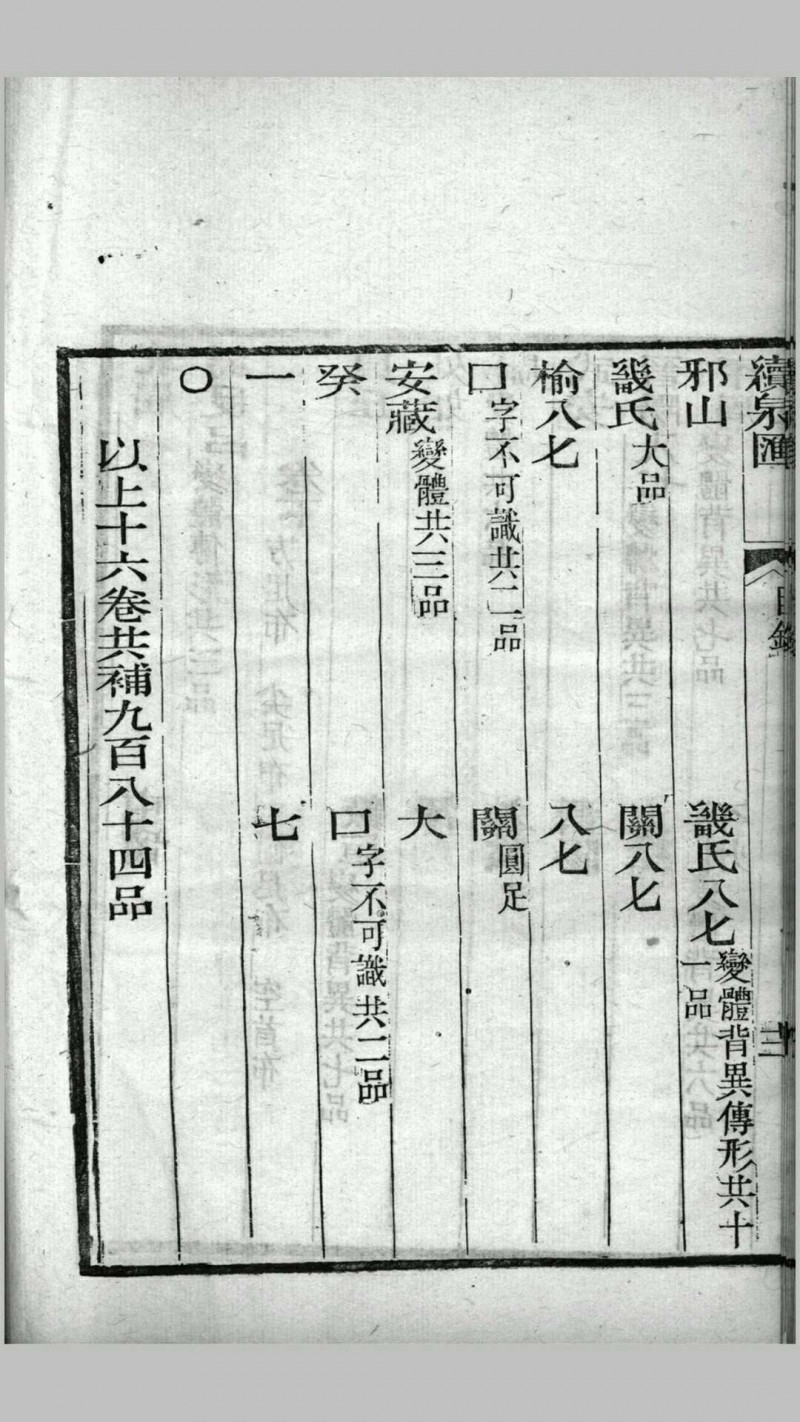 續泉匯
目錄
三
邪山
畿氏八七變體背異傳形共十一品
畿氏大品
關八七
榆八七
八七
口字不可識共二品
關圓足
安藏變體共三品
大
癸
口字不可識共二品
一
七
〇
以上十六卷共補九百八十四品